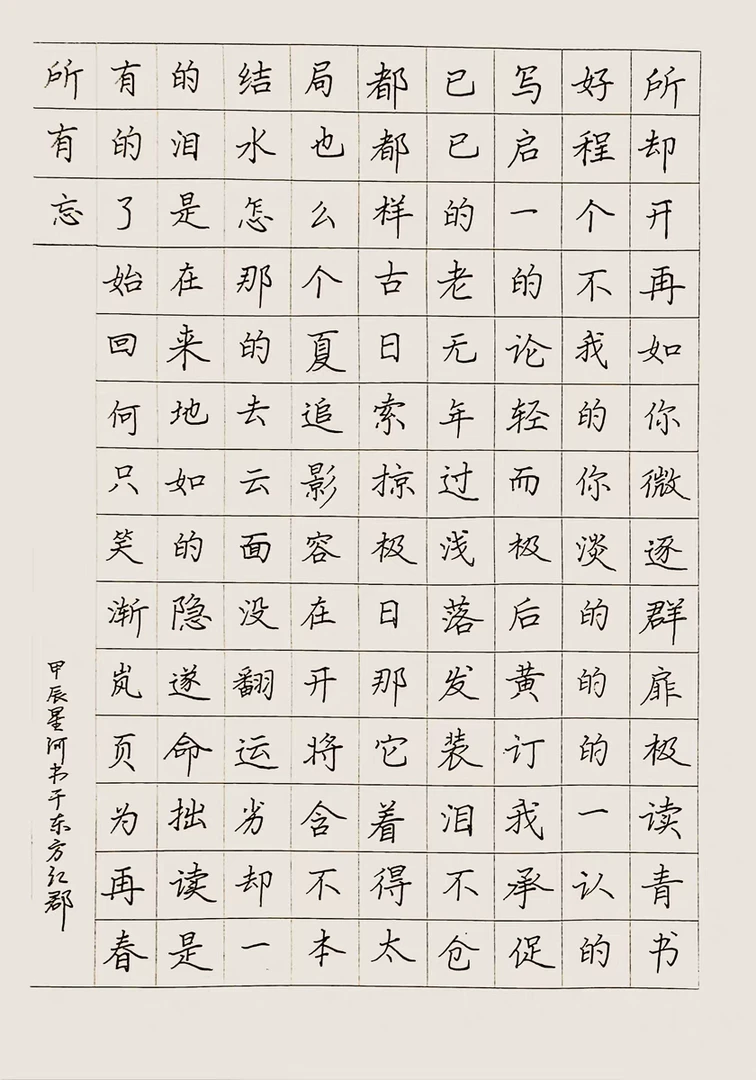 所有的结局都已写好所
有的泪水也都已启程却
忘了是怎么样的一个开
始在那个古老的不再
回来的夏日无论我如
何地去追索年轻的你
只如云影掠过而你微
笑的面容极浅极淡逐
渐隐没在日落后的群
岚遂翻开那发黄的扉
页命运将它装订的极
为拙劣含着泪我一读
再读却不得不承认青
春是一本太仓促的书
甲辰星河书于东方红郡